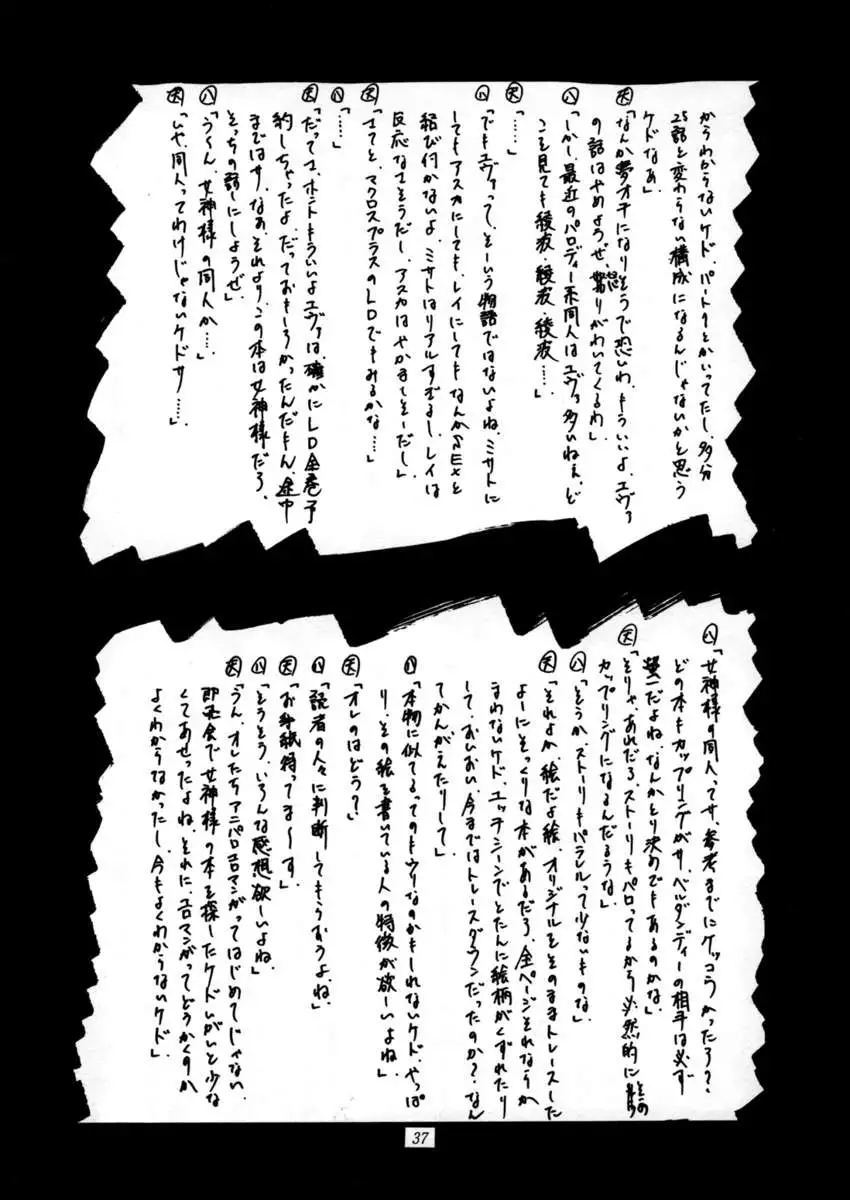 からわからないケド、パート1とかいってたし、多分
25話と変わらない構成になるんじゃないかと思う
ケドなぁ」
天「なんか夢オチになりそうで恐いわ、もういいよ、エヴァ
の話はやめようぜ、怒りがわいてくるわ」
八「しかし、最近のパロディー系同人はエヴァ多いねぇ、ど
こを見ても綾波・綾波・綾波……」
天「……」
八「でもエヴァって、そーいう物語ではないよね、ミサトに
してもアスカにしても、レイにしてもなんかSEXと
結び付かないよ、ミサトはリアルすぎるし、レイは
反応なさそうだし、アスカはやかましそーだし」
天「さてと、マクロスプラスのLDでもみるかな……」
八「……」
天「だってさ、ホントもういいよエヴァは、確かにLD全巻予
約しちゃったよ、だっておもしろかったんだもん、途中
まではサ、なぁ、それより、この本は女神様だろ、
そっちの話にしようぜ」
八「う〜ん、女神様の同人か……」
天「いや、同人ってわけじゃないケドサ……」
八「女神様の同人ってサ、参考までにケッコうかったろ?
どの本もカップリングがサ、ベルダンディーの相手は必ず
螢一だよね、なんかとり決めでもあるのかな」
天「そりゃ、あれだろ、ストーリーもパロってるから必然的にその
カップリングになるんだろうな」
八「そうか、ストーリーもパラレルって少ないものな」
天「それよか、絵だよ絵、オリジナルをそのままトレースした
よーにそっくりな本があるだろ、全ページそれならか
まわないケド、エッチシーンでとたんに絵柄がくずれたり
して、おいおい、今まではトレースダウンだったのか?なん
てかんがえたりして」
八「本物に似てるってのもウリなのかもしれないケド、やっぱ
り、その絵を書いている人の特徴が欲しいよね」
天「オレのはどう?」
八「読者の人々に判断してもらおうよね」
天「お手紙待ってま〜す」
八「そうそう、いろんな感想欲しいよね」
天「うん、オレたちアニパロエロマンガってはじめてじゃない、
即売会で女神様の本を探したケドいがいと少な
くてあせったよね、それに、エロマンガってどうかくのか
よくわからなかったし、今もよくわからないケド」
37